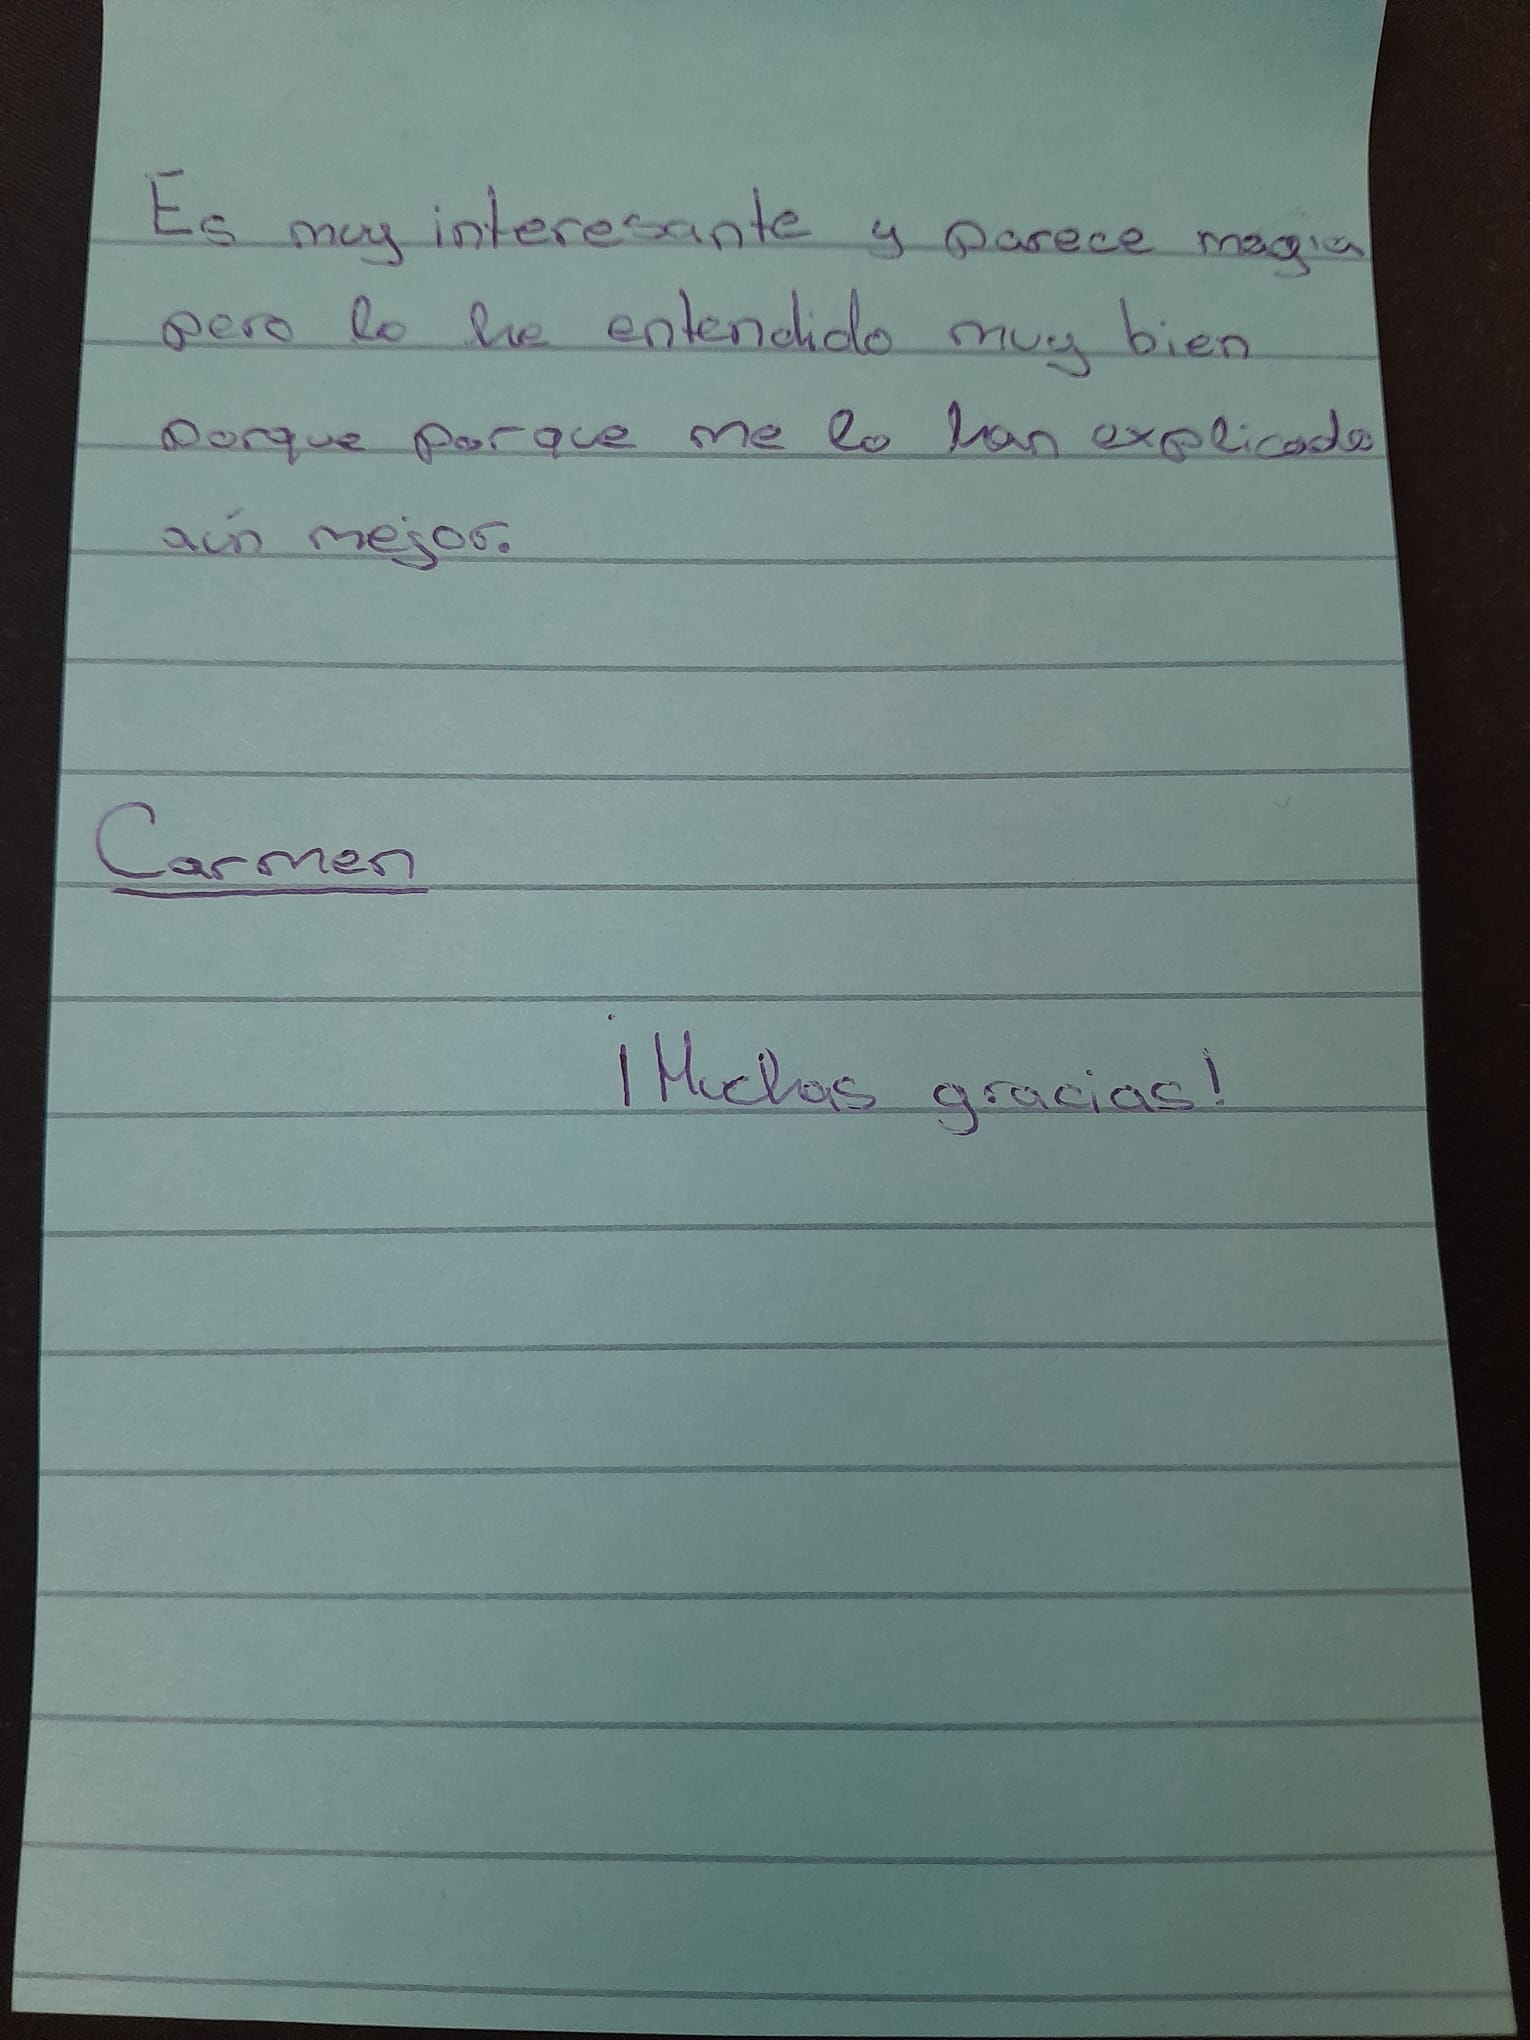 Es muy interesante y parece magia
pero lo he entendido muy bien
porque porque me lo han explicado
aún mejor.
Carmen
¡Muchas gracias!